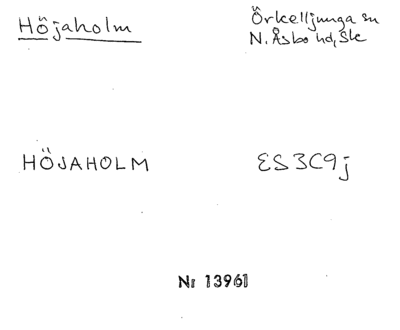 Höjaholm
Örkelljunga sn
N. Åsbo hd, Sk
HÖJAHOLM
ES3C9j
Nr 13961